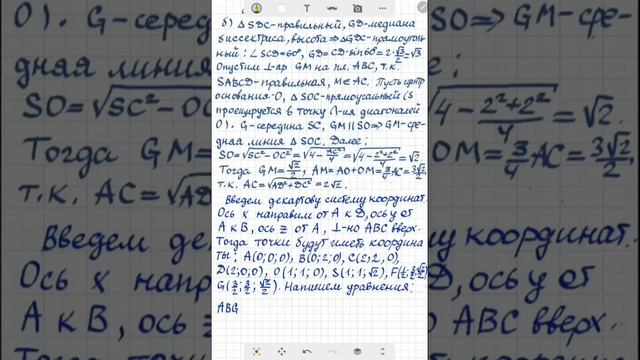 б) △SDC-правильный, GD-медиана
биссектриса, высота ⇒ △GDC-прямоуголь-
ный: ∠SCD=60°, GD=CD·sin60°=2·√3/2=√3
Опустим ⊥-яр GM на пл. ABC, т.к.
SABCD-правильная, M∈AC. Пусть центр
основания-O, △SOC-прямоугольный (S
проецируется в точку ∩-ия диагоналей
O). G-середина SC, GM||SO⇒GM-сре-
дняя линия △SOC. Далее:
SO=√SC²-OC²=√4-AC²/4=√4-2²+2²/4=√2.
Тогда GM=√2/2, AM=AO+OM=3/4AC=3√2/2
т.к. AC=√AD²+DC²=2√2.
Введем декартову систему координат.
Ось x направим от A к D, ось y от
A к B, ось z от A, ⊥-но ABC вверх.
Тогда точки будут иметь координа
ты: A(0;0;0), B(0;2;0), C(2;2,0)
D(2;0;0), O(1;1;0), S(1;1;√2),
G(3/2;3/2;√2/2). Напишем уравнения:
ABG